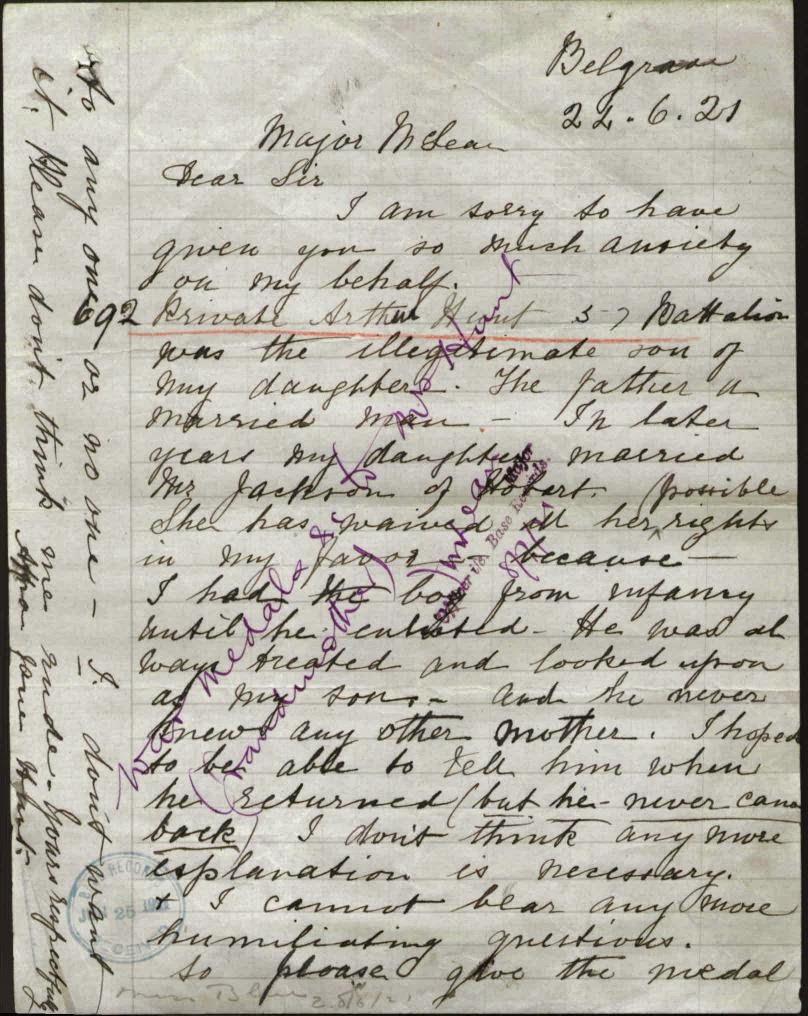 Belgrave
22.6.21
Major McLean
Dear Sir
I am sorry to have
given you so much anxiety
on my behalf.
692 Private Arthur Hunt 57 Battalion
was the illegitimate son of
my daughter. The father a
married man - In later
years my daughter married
Mr Jackson of Hobart. (possible
She has waived all her rights
in my favor - because -
I had the boy from infancy
until he enlisted - He was al
ways treated and looked upon
as my son, - and he never
knew any other mother. I hoped
to be able to tell him when
he returned (but he - never came
back) I don't think any more
explanation is necessary.
+ I cannot bear any more
humiliating questions.
So please give the medal
to any one or no one - I don't want
it. Please don't think me rude - Yours respectfully
Jane Hunt.
War Medals &c to Mrs Hunt
(Grandmother)
Major
Officer i/c Base Records.
RECORDS
25